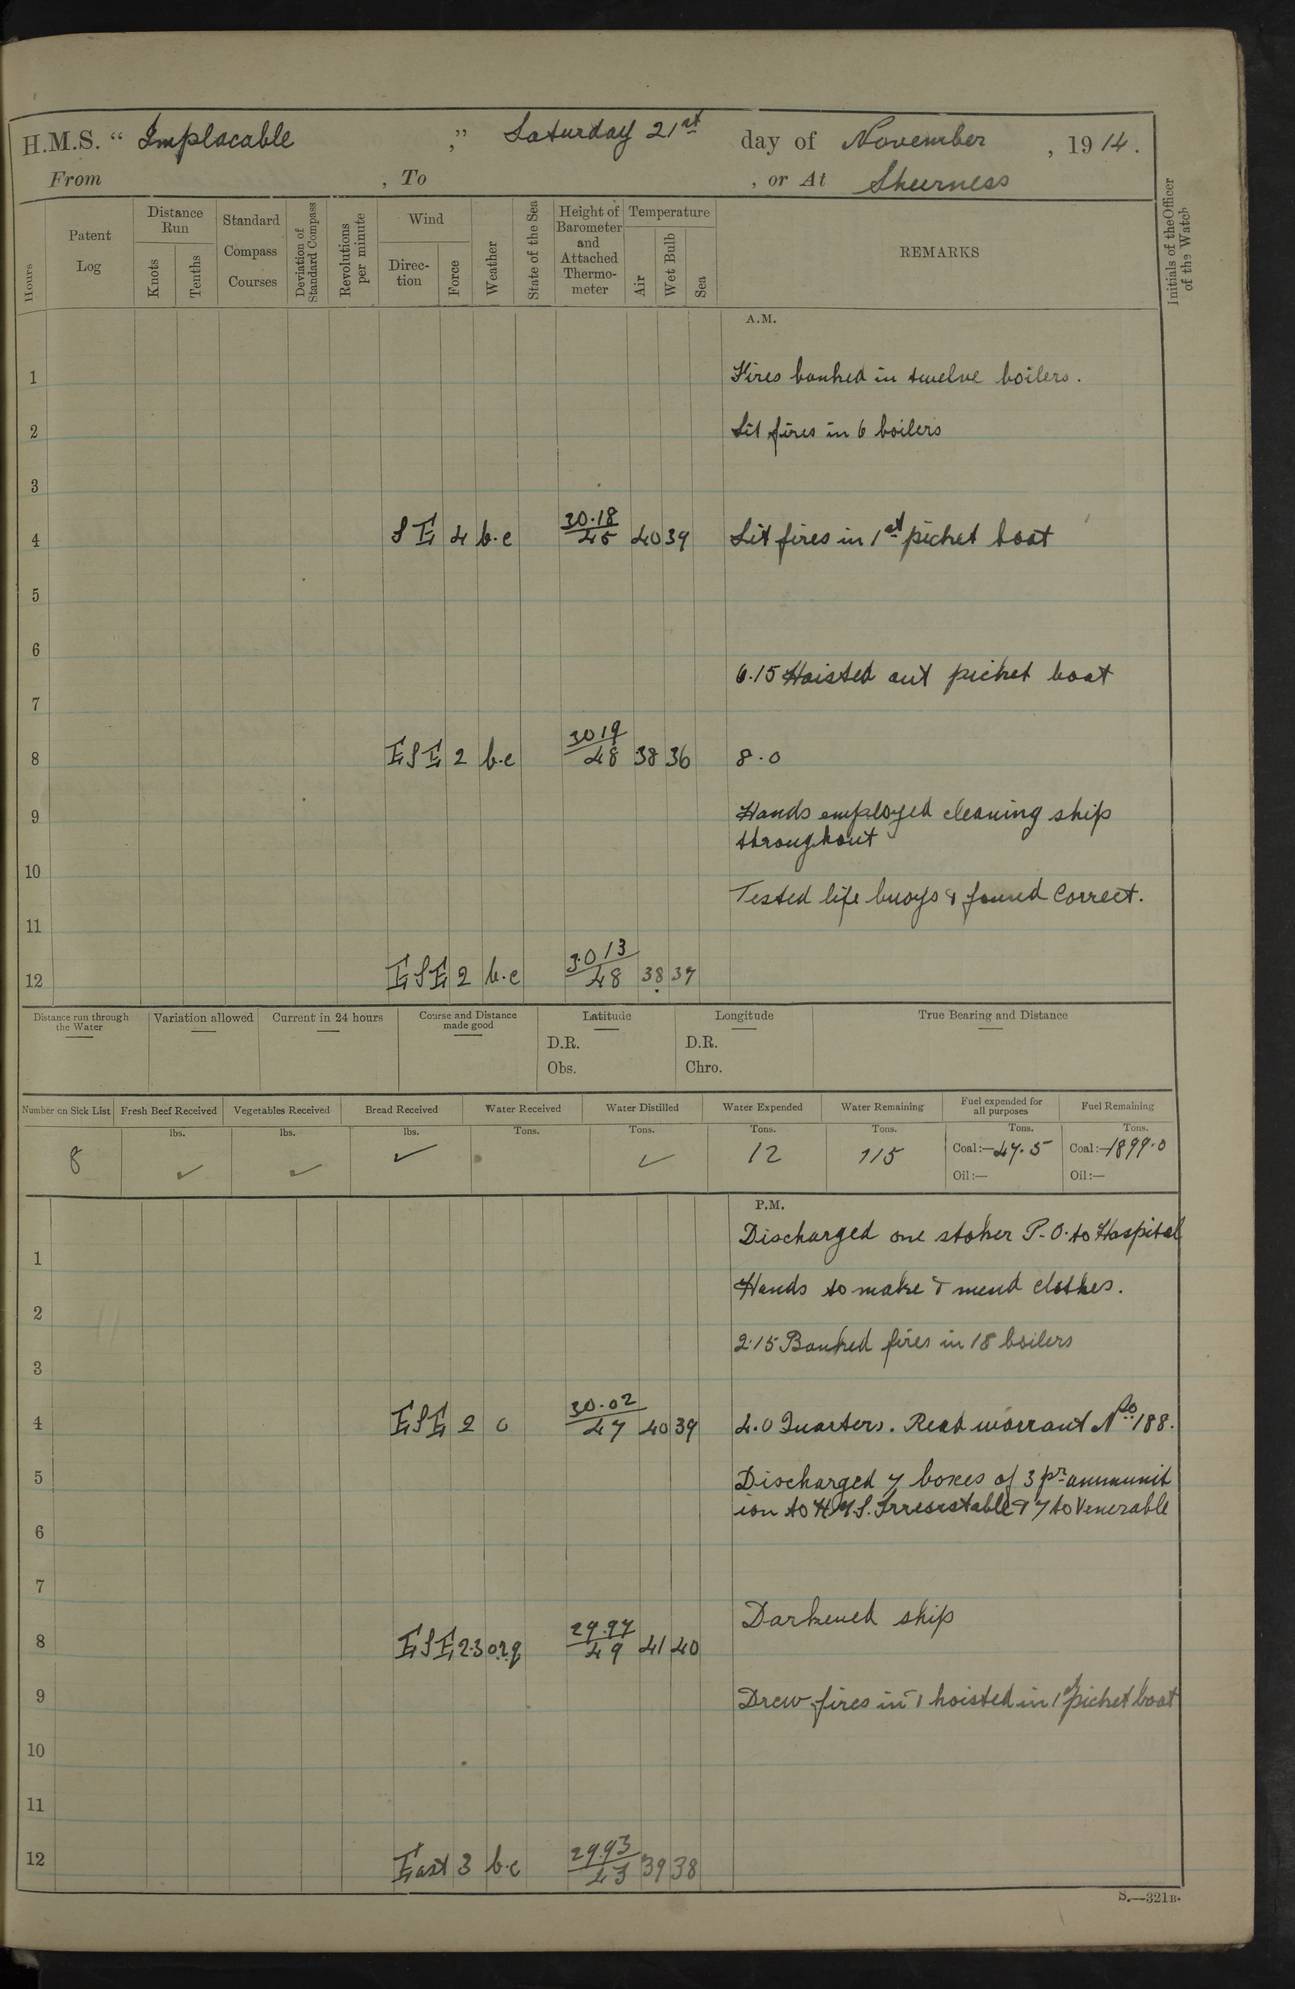 H.M.S. “ Implacable ,” Saturday 21st day of November , 1914.
From , To , or At Sheerness
Hours
Patent Log
Distance Run
Knots
Tenths
Standard Compass Courses
Deviation of Standard Compass
Revolutions per minute
Wind
Direc-tion
Force
Weather
State of the Sea
Height of Barometer and Attached Thermo-meter
Temperature
Air
Wet Bulb
Sea
REMARKS
Initials of the Officer of the Watch
A.M.
1 Fires banked in twelve boilers.
2 Lit fires in 6 boilers
3
4 SE 4 b.c 30.18/45 40 39 Lit fires in 1st picket boat
5
6
6.15 Hoisted out picket boat
7
8 ESE 2 b.c 3019/48 38 36 8.0
9 Hands employed cleaning ship
throughout
10
Tested life buoys & found correct.
11
12 ESE 2 b.c 3013/48 38 37
Distance run through the Water
Variation allowed
Current in 24 hours
Course and Distance made good
Latitude
D.R.
Obs.
Longitude
D.R.
Chro.
True Bearing and Distance
Number on Sick List Fresh Beef Received Vegetables Received Bread Received Water Received Water Distilled Water Expended Water Remaining Fuel expended for all purposes Fuel Remaining
lbs. lbs. lbs. Tons. Tons. Tons. Tons. Tons. Tons.
8 ✓ ✓ ✓ ✓ 12 115 Coal:—47.5 Coal:—1899.0
Oil:— Oil:—
P.M.
Discharged one stoker P.O. to Hospital
1
Hands to make & mend clothes.
2
2.15 Banked fires in 18 boilers
3
4 ESE 2 c 30.02/47 40 39 4.0 Quarters. Read warrant No 188.
5 Discharged 7 boxes of 3 pr ammunit
ion to H.M.S. Irresistable & 7 to Venerable
6
7
Darkened ship
8 ESE 2.3 o.r.q 29.97/49 41 40
9 Drew fires in & hoisted in 1st picket boat
10
11
12 East 3 b.c 29.93/43 39 38
S.—321B.